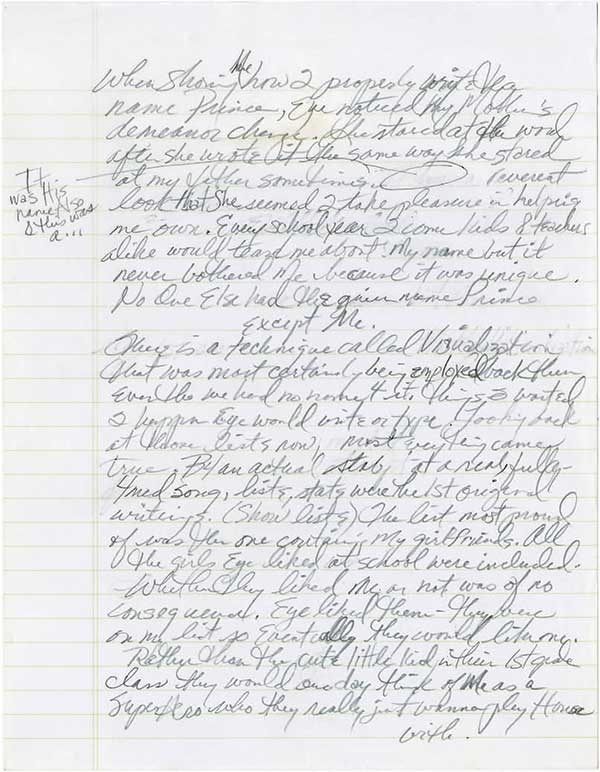 When showing me how 2 properly write the
name Prince, Eye noticed my Mother's
demeanor change. She stared at the word
after she wrote it the same way she stared
at my father sometimes. reverent
It
was His
name Also
& this was
a...
look that she seemed 2 take pleasure in helping
me own. Every school year 2 come kids & teachers
alike would tease me about my name but it
never bothered me because it was unique.
No One Else had the given name Prince
except Me.
There is a technique called Visualization
that was most certainly being employed back then
even tho we had no name 4 it. Things Eye wanted
2 happen Eye would write or type. Looking back
at those lists now, most everything came
true. By an actual at a really fully-
4med song, lists, stats were the 1st original
writings. (Show lists) The list most proud
of was the one containing my girlfriends. All
the girls Eye liked at school were included.
Whether they liked me or not was of no
consequence. Eye liked them – they were
on my list so Eventually they would like me.
Rather than the cute little kid in their 1st grade
class they would one day think of Me as a
Superhero who they really just wanna play House
with.